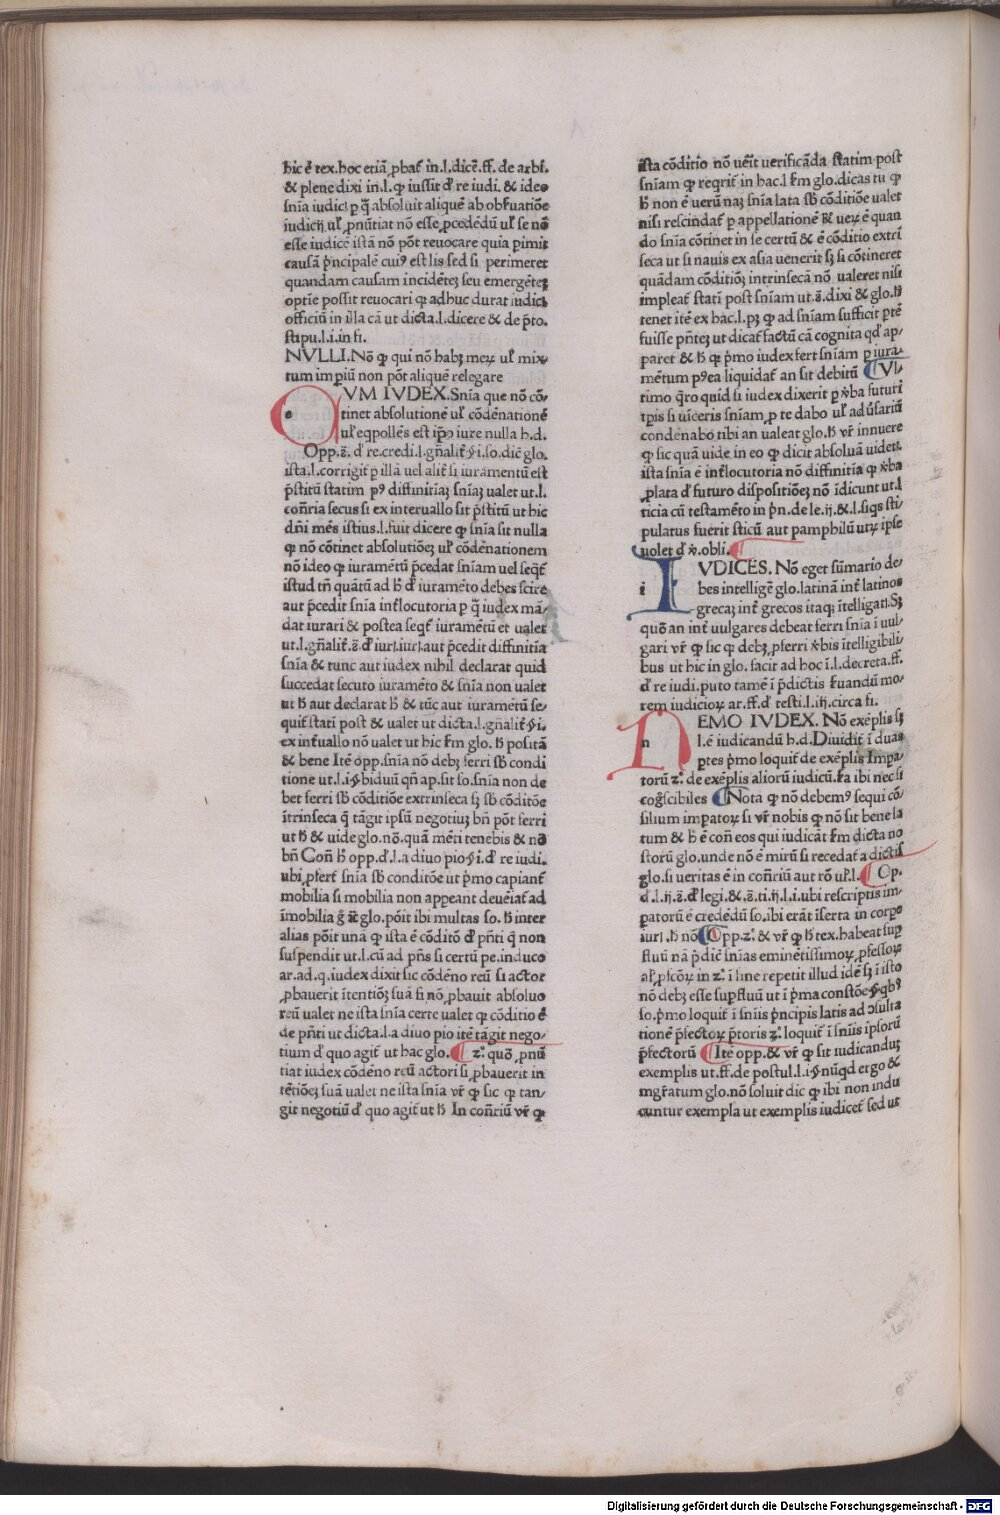 hic ē tex. hoc etiā ꝓbat̄ in .l. dicē. ff. de arbi.
& plene dixi in .l. ꝙ iussit ď re iudi. & ideo
sn̄ia iudicꝭ ꝑ q̄ absoluit aliquē ab obẜuatiōe
iudicij ul̛ ꝓnūtiat nō esse ꝓcedēdū ul̛ se nō
esse iudicē istā nō pōt reuocare quia ꝑimit
causā p̄ncipalē cuiꝰ est lis sed si perimeret
quandam causam incidētē seu emergētēꝫ
optīe possit reuocari ꝙ adhuc durat iudicꝭ
officiū in illa cā ut dicta .l. dicere & de p̄to.
stipu. l. i. in fi.
NVLLI. Nō ꝙ qui nō habꝫ meꝝ ul̛ mix-
tum imꝑiū non pōt aliquē relegare
VM IVDEX. Sn̄ia que nō cō-
tinet absolutionē ul̛ cōdēnationē
ul̛ eqpollēs est ip̄o iure nulla h. d.
Opp. ꝫ. ď re. credi. l. gn̄alit̄ § i. so. dic̄ glo.
ista .l. corrigit̄ ꝑ illā uel alit̄ si iuramentū est
p̄stitū statim pꝰ diffinitiāꝫ sn̄iaꝫ ualet ut .l.
con̄ria secus si ex interuallo sit p̄stitū ut hic
dn̄i mēs istius .l. fuit dicere ꝙ sn̄ia sit nulla
ꝙ nō cōtinet absolutiōeꝫ ul̛ cōdēnationem
nō ideo ꝙ iuramētū p̄cedat sn̄iam uel seqt̄
istud tn̄ quātū ad ħ ď iuramēto debes scire
aut p̄cedit sn̄ia int̄locutoria ꝑ q̄ iudex mā-
dat iurari & postea seqt̄ iuramētū et ualet
ut .l. gn̄alit̄. ꝫ. ď iuriiurꝭ. aut p̄cedit diffinitia
sn̄ia & tunc aut iudex nihil declarat quid
succedat secuto iuramēto & sn̄ia non ualet
ut ħ aut declarat ħ & tūc aut iuramētū se-
quit̄ statī post & ualet ut dicta .l. gn̄alit̄ § i.
ex int̄uallo nō ualet ut hic ẜm glo. ħ positā
& bene Itē opp. sn̄ia nō debꝫ ferri sb̄ condi
tione ut .l. i § biduū qn̄ ap. sit so. sn̄ia non de
bet ferri sb̄ cōditiōe extrinseca sꝫ sb̄ cōditōe
ītrinseca q̄ tāgit ipsū negotiuꝫ bn̄ pōt ferri
ut ħ & uide glo. nō. quā mēti tenebis & nō
bn̄ Con̄ ħ opp. ď .l. a diuo pio § i. ď re iudi.
ubi ꝓfert̄ sn̄ia sb̄ conditōe ut p̄mo capiant̄
mobilia si mobilia non appeant deueīat̄ ad
īmobilia ḡ ꝫc̄ glo. pōit ibi multas so. ħ inter
alias pōit una ꝙ ista ē cōditō ď pn̄ti q̄ non
suspendit ut .l. cū ad pn̄s si certū pe. induco
ar. ad. q. iudex dixit sic cōdēno reū si actor
ꝓbauerit ītentiōꝫ suā si nō ꝓbauit absoluo
reū ualet ne ista sn̄ia certe ualet ꝙ cōditio ē
de pn̄ti ut dicta .l. a diuo pio itē tāgit nego-
tium ď quo agit̄ ut hac glo. zº. quō ꝓnū
tiat iudex cōdēno reū actori si ꝓbauerit in
tētiōeꝫ suā ualet ne ista sn̄ia vr̄ ꝙ sic ꝙ tan-
git negotiū ď quo agit̄ ut ħ In con̄riū vr̄ ꝙ
ista cōditio nō uēit uerificāda statim post
sn̄iam ꝙ reqrit̄ in hac .l. ẜm glo. dicas tu ꝙ
ħ non ē uerū naꝫ sn̄ia lata sb̄ cōditiōe ualet
nisi rescindat̄ ꝑ appellationē & ueꝝ ē quan
do sn̄ia cōtinet in se certū & ē cōditio extrī
seca ut si nauis ex asia uenerit sꝫ si cōtineret
quādam cōditiōꝫ intrinsecā nō ualeret nisi
impleat̄ statī post sn̄iam ut. ꝫ. dixi & glo. ħ
tenet itē ex hac .l. pꝫ ꝙ ad sn̄iam sufficit ꝑtē
fuisse pn̄teꝫ ut dicat̄ factū cā cognita qď ap-
paret & ħ ꝙ p̄mo iudex fert sn̄iam ꝑ iura-
mētum pꝰea liquidat̄ an sit debitū Vl-
timo q̄ro quid si iudex dixerit ꝑ v̄ba futuri
tꝑis si uīceris sn̄iam ꝑ te dabo ul̛ aduſariū
condēnabo tibi an ualeat glo. ħ vr̄ innuere
ꝙ sic quā uide in eo ꝙ dicit absoluā uidet̄
ista sn̄ia ē int̄locutoria nō diffinitīa ꝙ v̄ba
ꝓlata ď futuro dispositiōeꝫ nō īdicunt ut .l.
ticia cū testamēto in p̄n. de le. ij. & .l. siqs sti-
pulatus fuerit sticū aut pamphilū utꝝ ipse
uolet ď v̄. obli.
VDICES. Nō eget sūmario de-
bes intelligē glo. latinā int̄ latinos
grecaꝫ int̄ grecos itaqꝫ ītelligatꝭ Sꝫ
quō an int̄ uulgares debeat ferri sn̄ia ī uul-
gari vr̄ ꝙ sic ꝙ debꝫ ꝓferri v̄bis ītelligibili
bus ut hic in glo. facit ad hoc ī .l. decreta. ff.
ď re iudi. puto tamē ī p̄dictis ẜuandū mo-
rem iudicioꝝ ar. ff. ď testi. l. iij. circa fi.
EMO IVDEX. Nō exēplis sꝫ
l. ē iudicandū h. d. Diuidit̄ ī duas
ꝑtes p̄mo loquit̄ de exēplis Impa-
torū zº. de exēplis aliorū iudicū. ẜa ibi nec si
cog̃scibiles Nota ꝙ nō debemꝰ sequi cō-
silium imꝑatoꝝ si vr̄ nobis ꝙ nō sit bene la
tum & ħ ē con̄ eos qui iudicāt ẜm dicta no
storū glo. unde nō ē mirū si recedat̄ a dictis
glo. si ueritas ē in con̄riū aut rō ul̛ .l. Op.
ď .l. ij. ꝫ. ď legi. &. ꝫ. ti. ij. l. i. ubi rescriptis im-
ꝑatorū ē credēdū so. ibi erāt īserta in corꝑe
iurꝭ. ħ nō Opp. zº. & vr̄ ꝙ ħ tex. habeat suꝑ
fluū nā p̄dic̄ sn̄ias eminētissimoꝝ p̄fessoꝝ
al̛ p̄fcōꝝ in zº. ī fine repetit illud idē sꝫ ī isto
nō debꝫ esse suꝑfluū ut ī p̄ma constōe § qbꝰ
so. p̄mo loquit̄ ī sn̄iis p̄ncipis latis ad ↄsulta
tionē p̄fectoꝝ p̄toris zº. loquit̄ ī sn̄iis ipsorū
p̄fectorū Itē opp. & vr̄ ꝙ sit iudicanduꝫ
exemplis ut. ff. de postul. l. i § nūqď ergo &
mgr̄atum glo. nō soluit dic ꝙ ibi non indu
cuntur exempla ut exemplis iudicet̄ sed ut
Digitalisierung gefördert durch die Deutsche Forschungsgemeinschaft - DFG